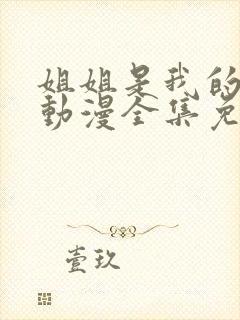 姐姐是我的
動漫全集免
壹玖